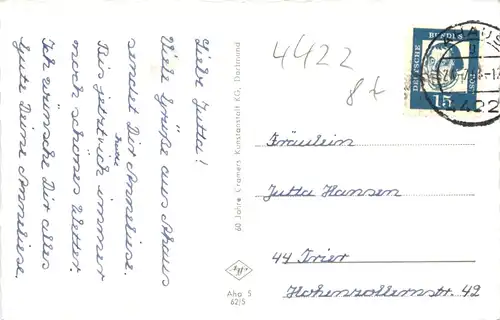 Liebe Jutta!
Viele Grüße aus Ahaus
sendet Dir Anneliese.
Bis jetzt ich immer
Freude
noch schönes Wetter.
Ich wünsche Dir alles
Gute Deine Anneliese.
60 Jahre Cramers Kunstanstalt KG, Dortmund
Aha 5
62/5
4422
8 t
DEUTSCHE
BUNDESPOST
15
AHAUS
4422
Fräulein
Jutta Hansen
44 Trier
Hohenzollernstr. 42